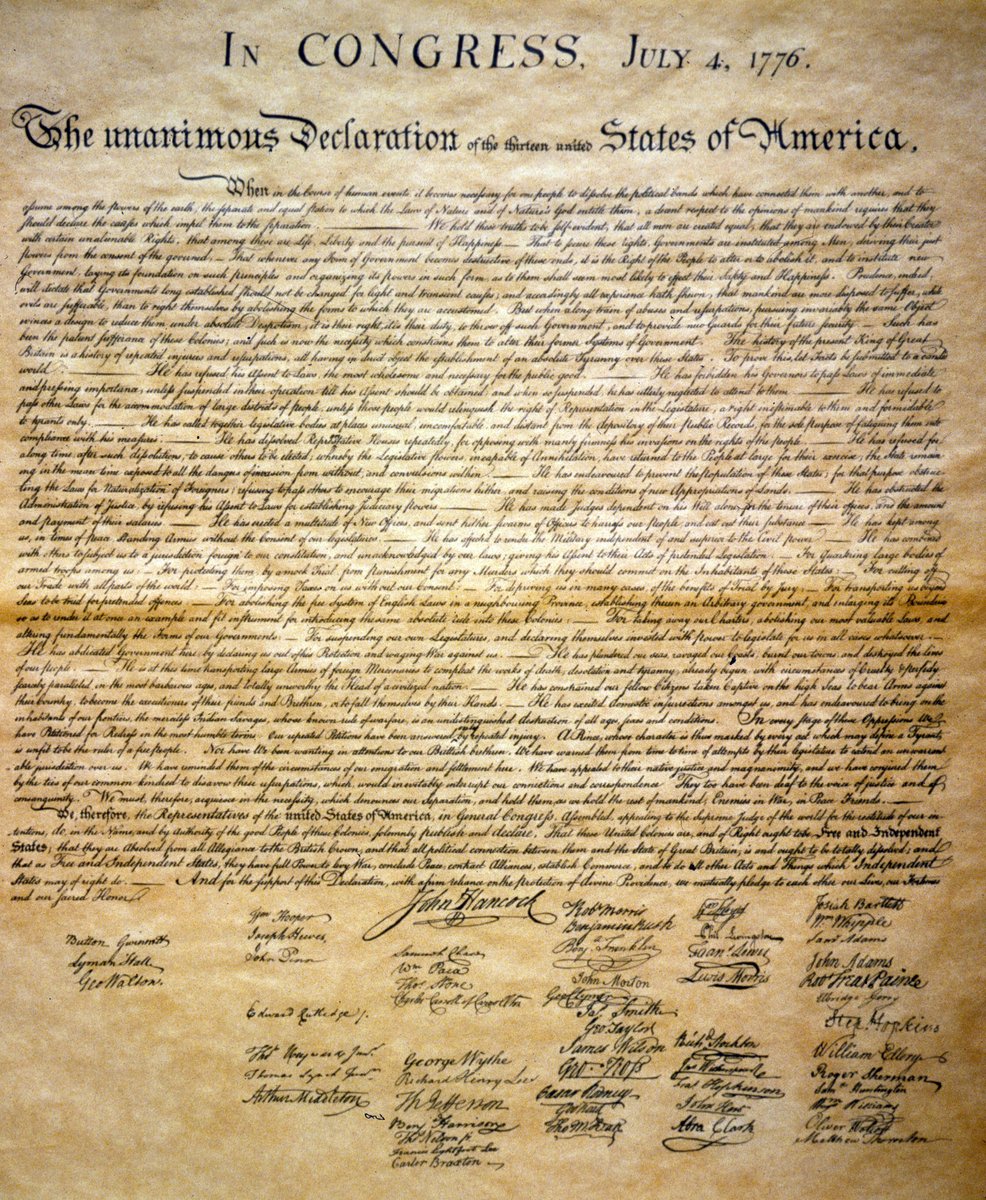 In CONGRESS, July 4, 1776.
The unanimous Declaration of the thirteen united States of America,
When in the Course of human events, it becomes necessary for one people to dissolve the political bands which have connected them with another, and to
assume among the powers of the earth, the separate and equal station to which the Laws of Nature and of Nature's God entitle them, a decent respect to the opinions of mankind requires that they
should declare the causes which impel them to the separation. — We hold these truths to be self-evident, that all men are created equal, that they are endowed by their Creator
with certain unalienable Rights, that among these are Life, Liberty and the pursuit of Happiness — That to secure these rights, Governments are instituted among Men, deriving their just
powers from the consent of the governed, — That whenever any Form of Government becomes destructive of these ends, it is the Right of the People to alter or to abolish it, and to institute new
Government, laying its foundation on such principles and organizing its powers in such form, as to them shall seem most likely to effect their Safety and Happiness. Prudence, indeed,
will dictate that Governments long established should not be changed for light and transient causes; and accordingly all experience hath shewn, that mankind are more disposed to suffer, while
evils are sufferable, than to right themselves by abolishing the forms to which they are accustomed. But when a long train of abuses and usurpations, pursuing invariably the same Object
evinces a design to reduce them under absolute Despotism, it is their right, it is their duty, to throw off such Government, and to provide new Guards for their future security. — Such has
been the patient sufferance of these Colonies; and such is now the necessity which constrains them to alter their former Systems of Government. The history of the present King of Great
Britain is a history of repeated injuries and usurpations, all having in direct object the establishment of an absolute Tyranny over these States. To prove this, let Facts be submitted to a candid
world. — He has refused his Assent to Laws, the most wholesome and necessary for the public good. — He has forbidden his Governors to pass Laws of immediate
and pressing importance, unless suspended in their operation till his Assent should be obtained; and when so suspended, he has utterly neglected to attend to them. — He has refused to
pass other Laws for the accommodation of large districts of people, unless those people would relinquish the right of Representation in the Legislature, a right inestimable to them and formidable
to tyrants only. — He has called together legislative bodies at places unusual, uncomfortable, and distant from the depository of their public Records, for the sole purpose of fatiguing them into
compliance with his measures. — He has dissolved Representative Houses repeatedly, for opposing with manly firmness his invasions on the rights of the people. — He has refused for
a long time, after such dissolutions, to cause others to be elected; whereby the Legislative powers, incapable of Annihilation, have returned to the People at large for their exercise; the State remain-
ing in the mean time exposed to all the dangers of invasion from without, and convulsions within. — He has endeavoured to prevent the population of these States; for that purpose obstruc-
ting the Laws for Naturalization of Foreigners; refusing to pass others to encourage their migrations hither, and raising the conditions of new Appropriations of Lands. — He has obstructed the
Administration of Justice, by refusing his Assent to Laws for establishing Judiciary powers. — He has made Judges dependent on his Will alone, for the tenure of their offices, and the amount
and payment of their salaries. — He has erected a multitude of New Offices, and sent hither swarms of Officers to harrass our people, and eat out their substance. — He has kept among
us, in times of peace, Standing Armies without the Consent of our legislatures. — He has affected to render the Military independent of and superior to the Civil power. — He has combined
with others to subject us to a jurisdiction foreign to our constitution, and unacknowledged by our laws; giving his Assent to their Acts of pretended Legislation: — For Quartering large bodies of
armed troops among us: — For protecting them, by a mock Trial, from punishment for any Murders which they should commit on the Inhabitants of these States: — For cutting off
our Trade with all parts of the world: — For imposing Taxes on us without our Consent: — For depriving us in many cases, of the benefits of Trial by Jury: — For transporting us beyond
Seas to be tried for pretended offences — For abolishing the free System of English Laws in a neighbouring Province, establishing therein an Arbitrary government, and enlarging its Boundaries
so as to render it at once an example and fit instrument for introducing the same absolute rule into these Colonies: — For taking away our Charters, abolishing our most valuable Laws, and
altering fundamentally the Forms of our Governments: — For suspending our own Legislatures, and declaring themselves invested with power to legislate for us in all cases whatsoever. —
He has abdicated Government here, by declaring us out of his Protection and waging War against us. — He has plundered our seas, ravaged our Coasts, burnt our towns, and destroyed the lives
of our people. — He is at this time transporting large Armies of foreign Mercenaries to compleat the works of death, desolation and tyranny, already begun with circumstances of Cruelty & perfidy
scarcely paralleled in the most barbarous ages, and totally unworthy the Head of a civilized nation. — He has constrained our fellow Citizens taken Captive on the high Seas to bear Arms against
their Country, to become the executioners of their friends and Brethren, or to fall themselves by their Hands. — He has excited domestic insurrections amongst us, and has endeavoured to bring on the
inhabitants of our frontiers, the merciless Indian Savages, whose known rule of warfare, is an undistinguished destruction of all ages, sexes and conditions. In every stage of these Oppressions We
have Petitioned for Redress in the most humble terms: Our repeated Petitions have been answered only by repeated injury. A Prince, whose character is thus marked by every act which may define a Tyrant,
is unfit to be the ruler of a free people. Nor have We been wanting in attentions to our Brittish brethren. We have warned them from time to time of attempts by their legislature to extend an unwarrant-
able jurisdiction over us. We have reminded them of the circumstances of our emigration and settlement here. We have appealed to their native justice and magnanimity, and we have conjured them
by the ties of our common kindred to disavow these usurpations, which, would inevitably interrupt our connections and correspondence. They too have been deaf to the voice of justice and of
consanguinity. We must, therefore, acquiesce in the necessity, which denounces our Separation, and hold them, as we hold the rest of mankind, Enemies in War, in Peace Friends. —
We, therefore, the Representatives of the united States of America, in General Congress, Assembled, appealing to the Supreme Judge of the world for the rectitude of our in-
tentions, do, in the Name, and by Authority of the good People of these Colonies, solemnly publish and declare, That these United Colonies are, and of Right ought to be Free and Independent
States; that they are Absolved from all Allegiance to the British Crown, and that all political connection between them and the State of Great Britain, is and ought to be totally dissolved; and
that as Free and Independent States, they have full Power to levy War, conclude Peace, contract Alliances, establish Commerce, and to do all other Acts and Things which Independent
States may of right do. — And for the support of this Declaration, with a firm reliance on the protection of divine Providence, we mutually pledge to each other our Lives, our Fortunes
and our sacred Honor.
Button Gwinnett
Lyman Hall
Geo Walton.
Wm Hooper
Joseph Hewes,
John Penn
Edward Rutledge /.
Thos Heyward Junr.
Thomas Lynch Junr.
Arthur Middleton
John Hancock
Samuel Chase
Wm Paca
Thos Stone
Charles Carroll of Carrollton
George Wythe
Richard Henry Lee
Th Jefferson
Benj Harrison
Thos Nelson jr.
Francis Lightfoot Lee
Carter Braxton
Robt Morris
Benjamin Rush
Benj. Franklin
John Morton
Geo Clymer
Jas. Smith
Geo. Taylor
James Wilson
Geo. Ross
Caesar Rodney
Geo Read
Tho M:Kean
Wm Floyd
Phil. Livingston
Frans. Lewis
Lewis Morris
Richd. Stockton
Jno Witherspoon
Fras. Hopkinson
John Hart
Abra Clark
Josiah Bartlett
Wm. Whipple
Saml Adams
John Adams
Robt Treat Paine
Elbridge Gerry
Step. Hopkins
William Ellery
Roger Sherman
Saml Huntington
Wm Williams
Oliver Wolcott
Matthew Thornton